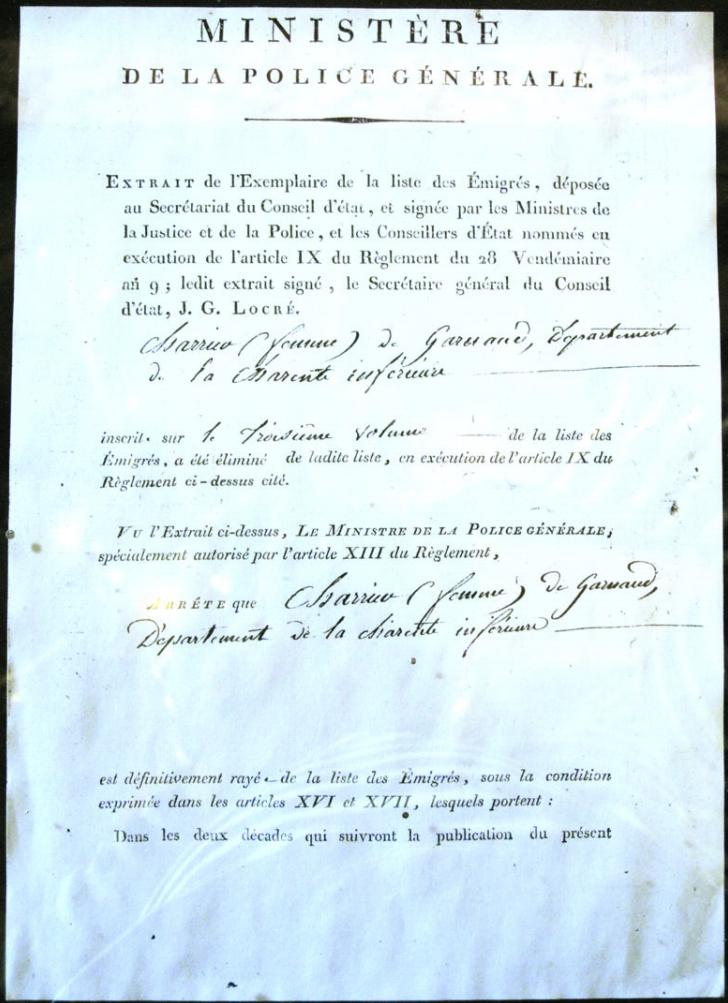 MINISTÈRE
DE LA POLICE GÉNÉRALE.
EXTRAIT de l'Exemplaire de la liste des Émigrés, déposée
au Secrétariat du Conseil d'état, et signée par les Ministres de
la Justice et de la Police, et les Conseillers d'État nommés en
exécution de l'article IX du Règlement du 28 Vendémiaire
an 9; ledit extrait signé, le Secrétaire général du Conseil
d'état, J. G. LOCRÉ.
(femme) de Garnaud, Departement
de la Charente inférieure
inscrit sur le troisième volume de la liste des
Émigrés, a été éliminé de ladite liste, en exécution de l'article IX du
Règlement ci-dessus cité.
VU l'Extrait ci-dessus, LE MINISTRE DE LA POLICE GÉNÉRALE,
spécialement autorisé par l'article XIII du Règlement,
ARRÊTE que (femme) de Garnaud,
Departement de la Charente inférieure
est définitivement rayé de la liste des Émigrés, sous la condition
exprimée dans les articles XVI et XVII, lesquels portent :
Dans les deux décades qui suivront la publication du présent